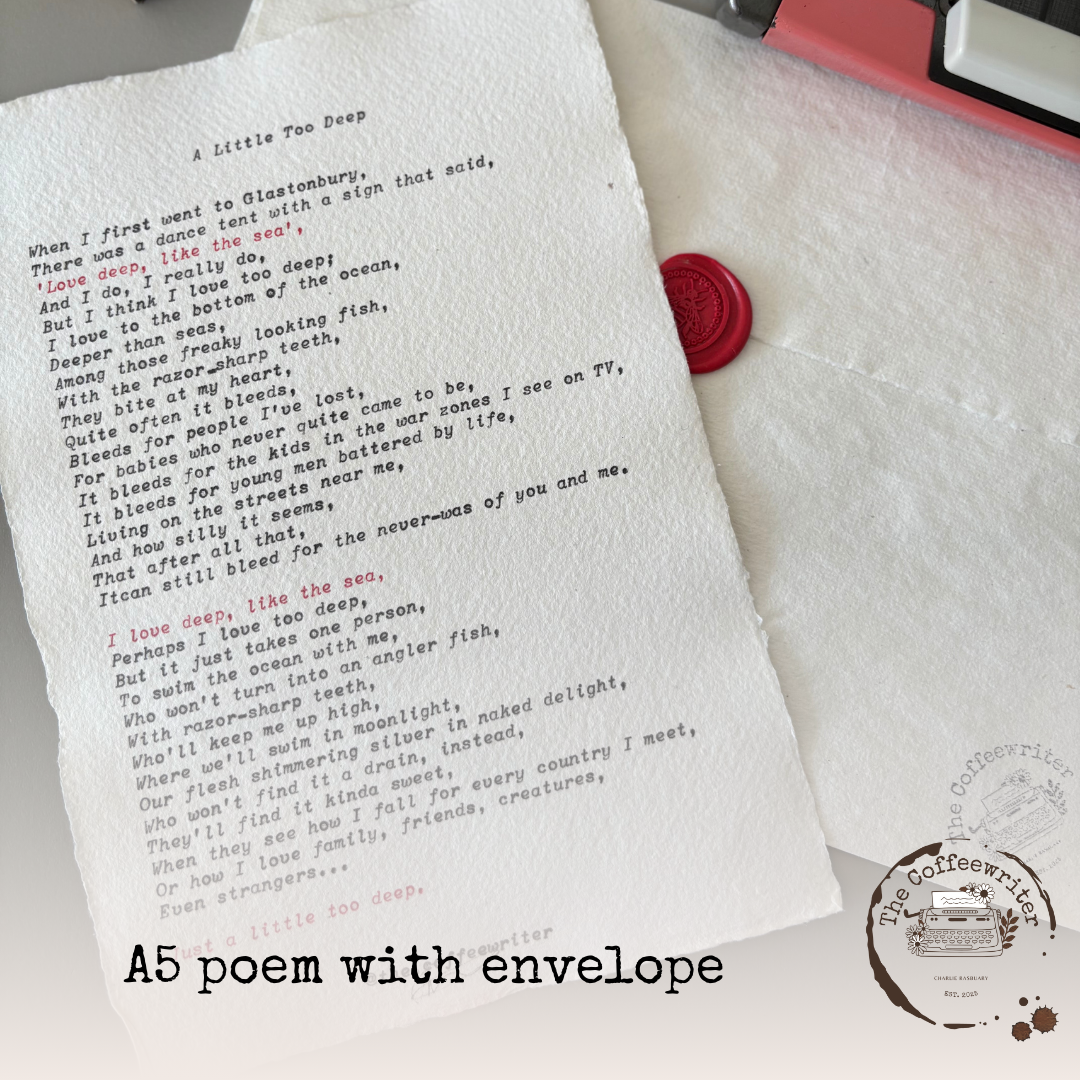 A Little Too Deep
When I first went to Glastonbury,
There was a dance tent with a sign that said,
'Love deep, like the sea',
And I do, I really do,
But I think I love too deep;
I love to the bottom of the ocean,
Deeper than seas,
Among those freaky looking fish,
With the razor-sharp teeth,
They bite at my heart,
Quite often it bleeds,
Bleeds for people I've lost,
For babies who never quite came to be,
It bleeds for the kids in the war zones I see on TV,
It bleeds for young men battered by life,
Living on the streets near me,
And how silly it seems,
That after all that,
Itcan still bleed for the never-was of you and me.
I love deep, like the sea,
Perhaps I love too deep,
But it just takes one person,
To swim the ocean with me,
Who won't turn into an angler fish,
With razor-sharp teeth,
Who'll keep me up high,
Where we'll swim in moonlight,
Our flesh shimmering silver in naked delight,
Who won't find it a drain, instead,
They'll find it kinda sweet,
When they see how I fall for every country I meet,
Or how I love family, friends, creatures,
Even strangers...
Just a little too deep.
A5 poem with envelope
The Coffeewriter
The Coffeewriter
CHARLIE BASBUARY
EST. 2025